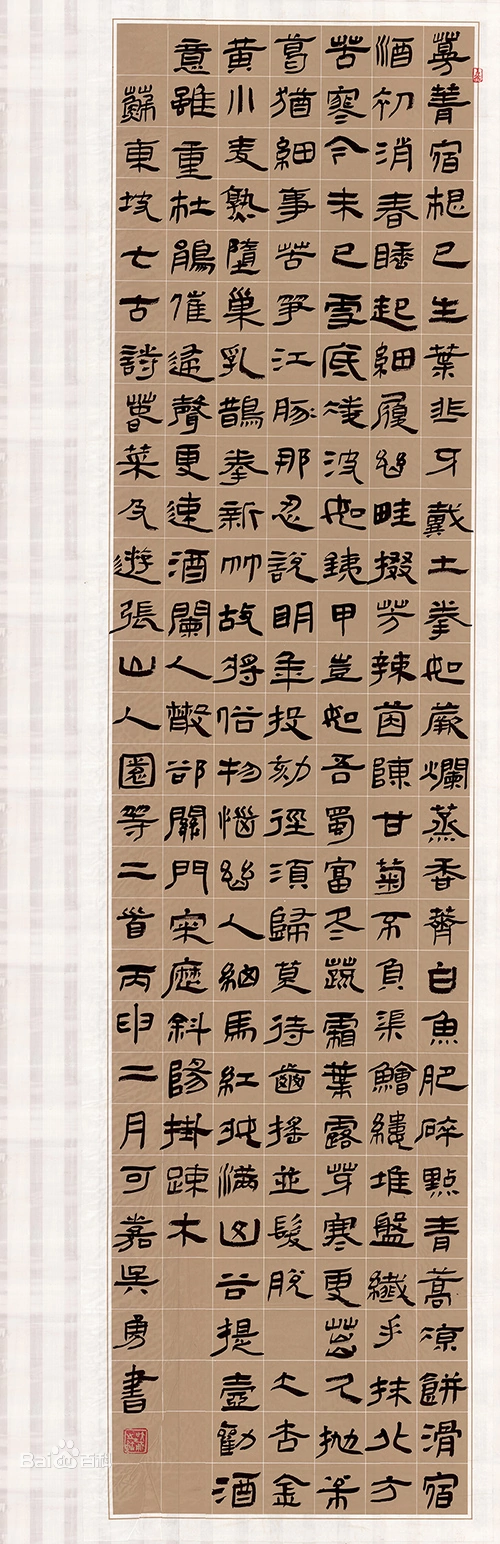 蔓菁宿根已生葉韭牙戴土拳如蕨爛蒸香薺白魚肥碎點青蒿凉餅滑宿
酒初消春睡起細履幽畦掇芳辣茵陳甘菊不負渠鱠縷堆盤纖手抹北方
苦寒今未已雪底淩波如鐵甲豈如吾蜀富冬蔬霜葉露芽寒更茁久抛菘
葛猶細事苦筍江豚那忍說明年投劾徑須歸莫待齒搖並髮脫 大杏金
黃小麦熟墮巢乳鵲拳新竹故將俗物惱幽人細馬紅妝滿山谷提壺勸酒
意雖重杜鵑催歸聲更速酒闌人散卻關門寂歷斜陽掛疎木
蘇東坡七古詩春菜及遊張山人園等二首丙申二月可嘉吳勇書
Bai百科